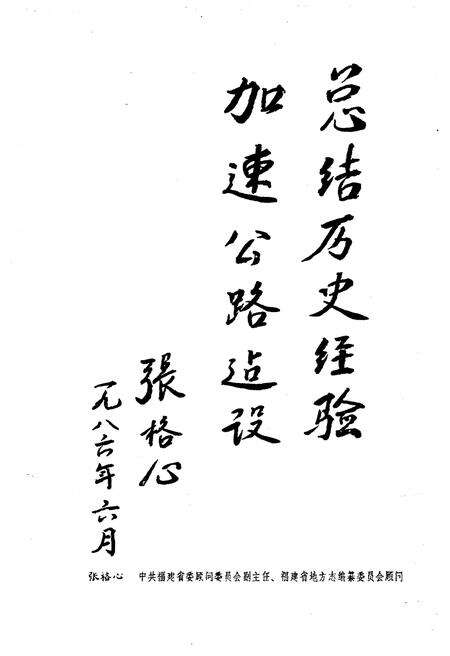 总结历史经验
加速公路建设
張格心
一九八六年六月
张格心 中共福建省委顾问委员会副主任、福建省地方志编纂委员会顾问